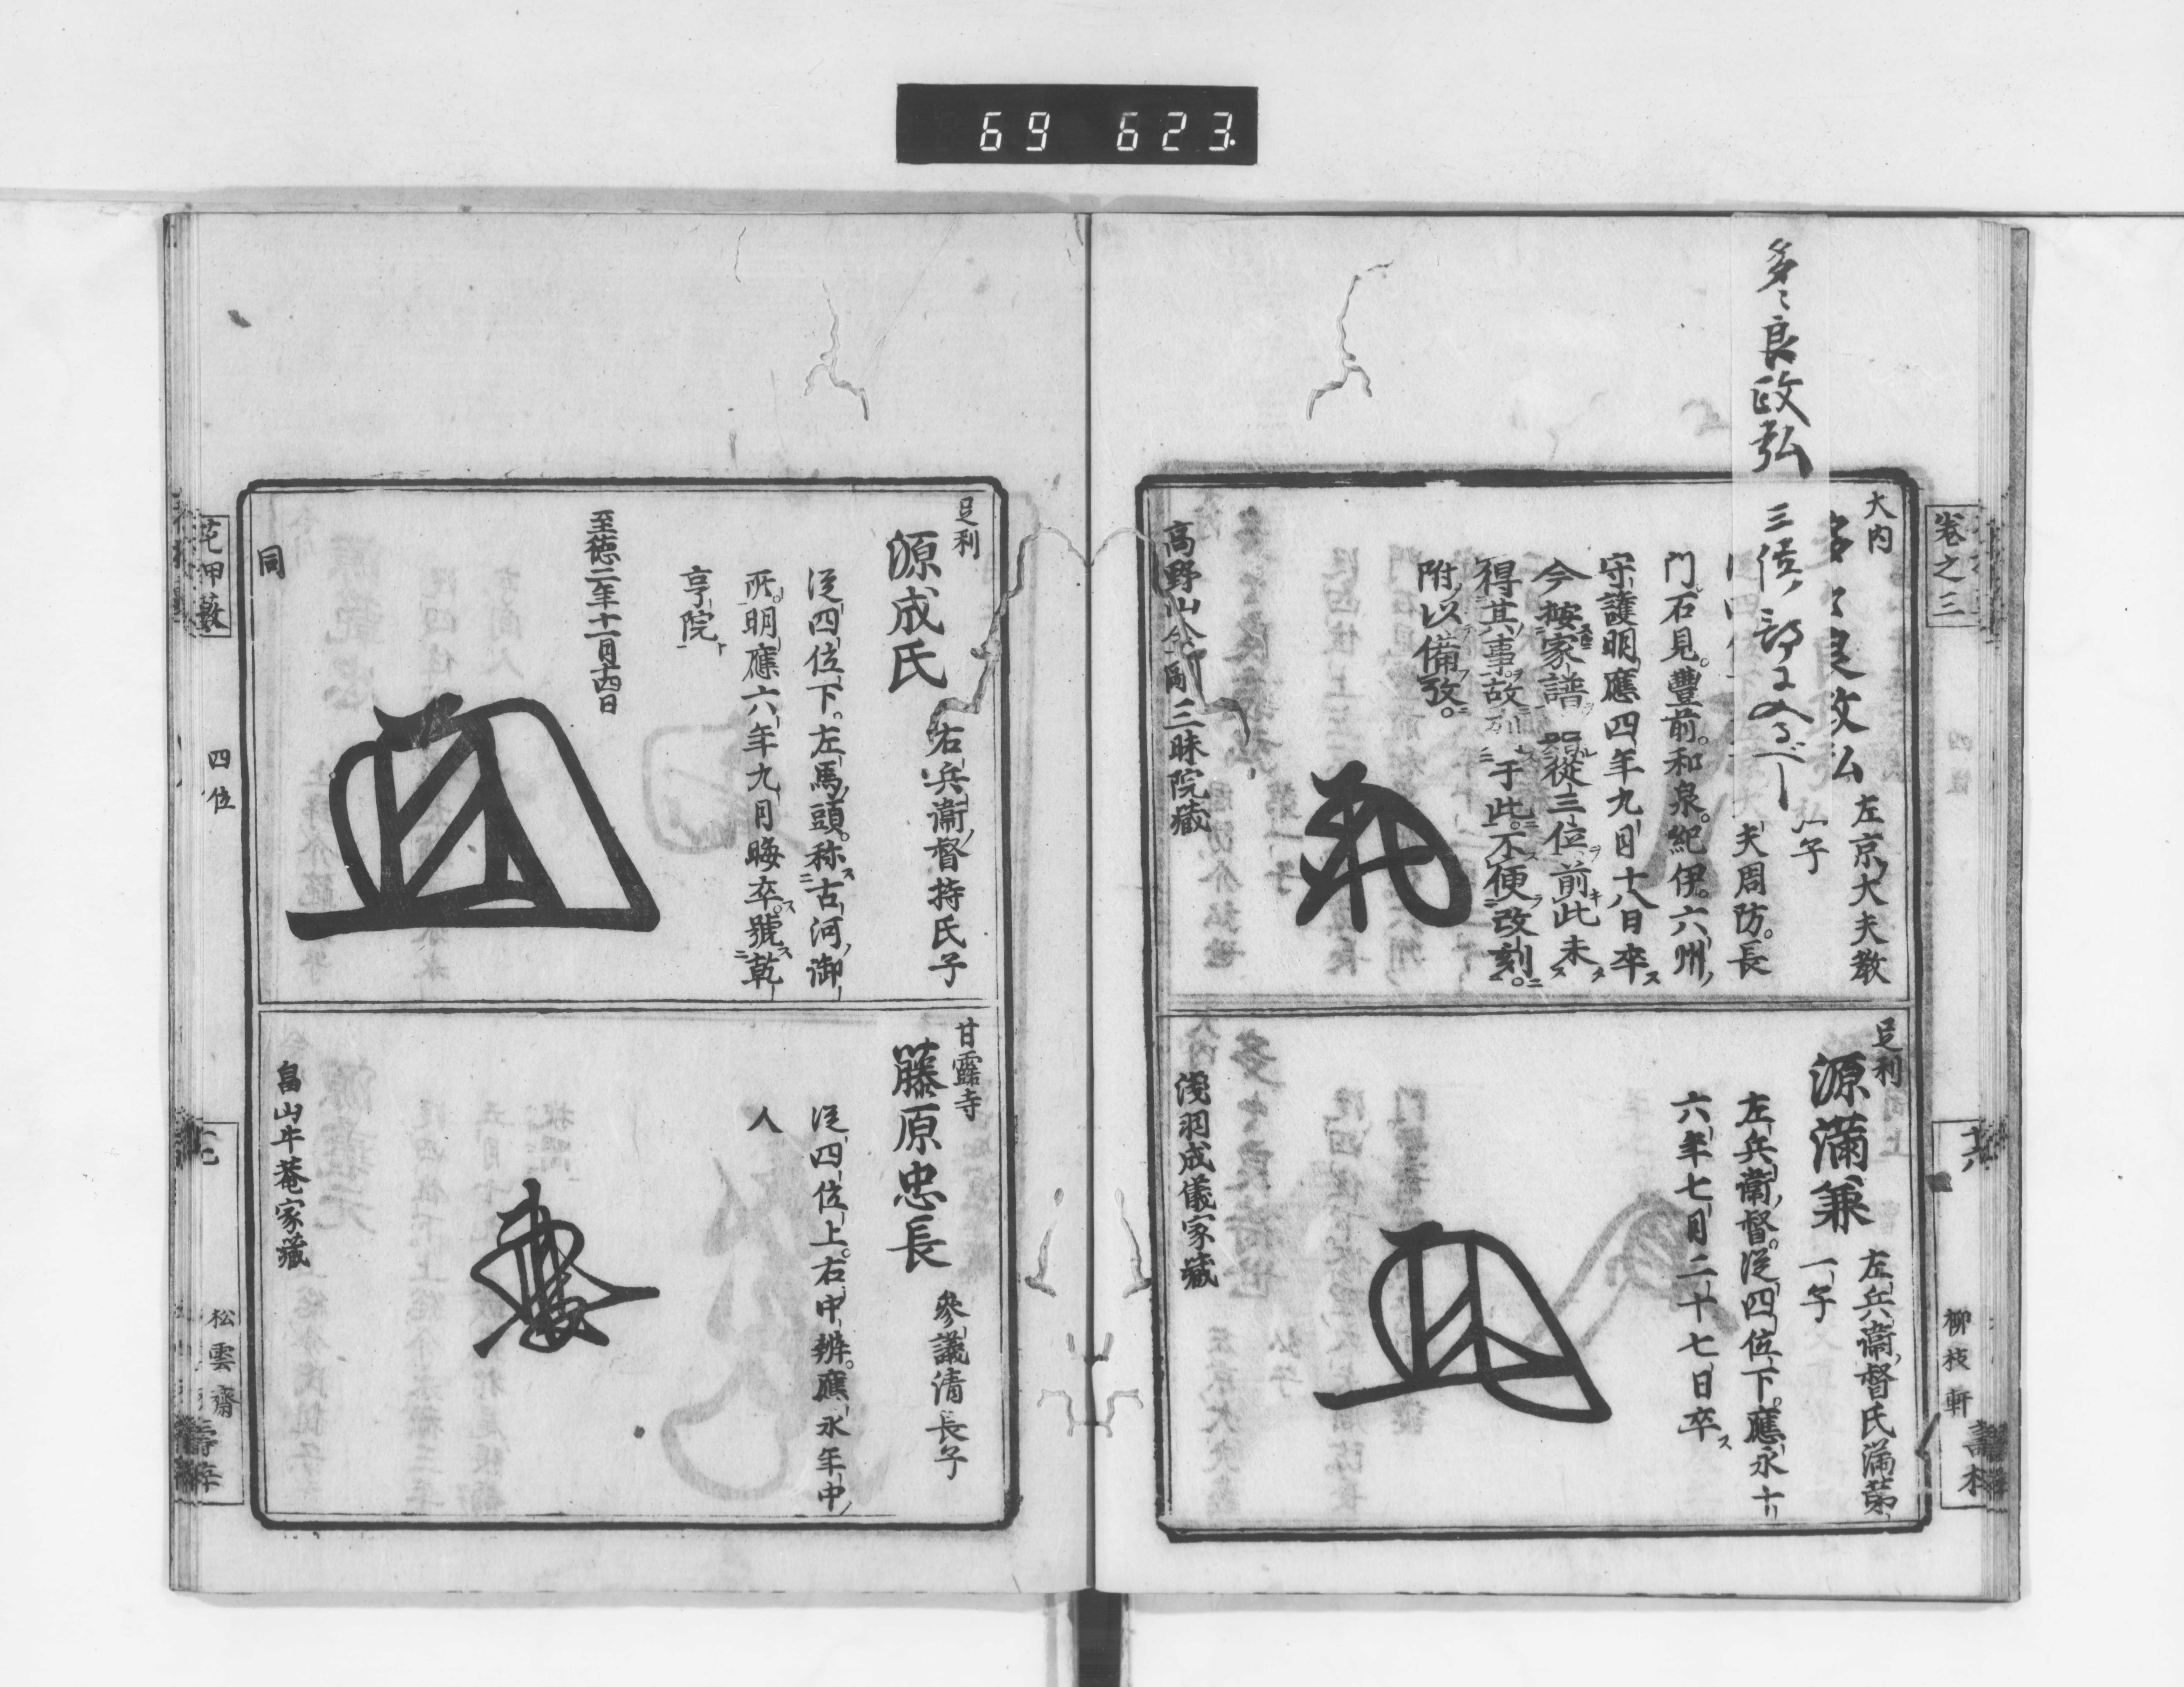 69 623.
多々良政弘
三位ノ部ニ入るべし
卷之三
大内
左京大夫教
夫周防。長
門石見。豐前。和泉。紀伊。六州
守護明應四年九月十八日卒ス
今按家譜贈從三位前此未
得其事。故列于此。不便改刻。
附以備攷。
高野山金剛三昧院藏
足利
源滿兼
左兵衞督氏滿第
一子
左兵衞督。從四位下。應永十
六年七月二十七日卒ス
淺羽成儀家藏
十六
柳枝軒
足利
源成氏
右兵衞督持氏子
從四位下。左馬頭。称ス古河御
所。明應六年九月晦卒ス。號ス乾
亨院ト
至德二年十一月十四日
同
甘露寺
藤原忠長
參議清長子
從四位上。右中辨。應永年中
人
畠山牛菴家藏
花押藪
四位
松雲齋